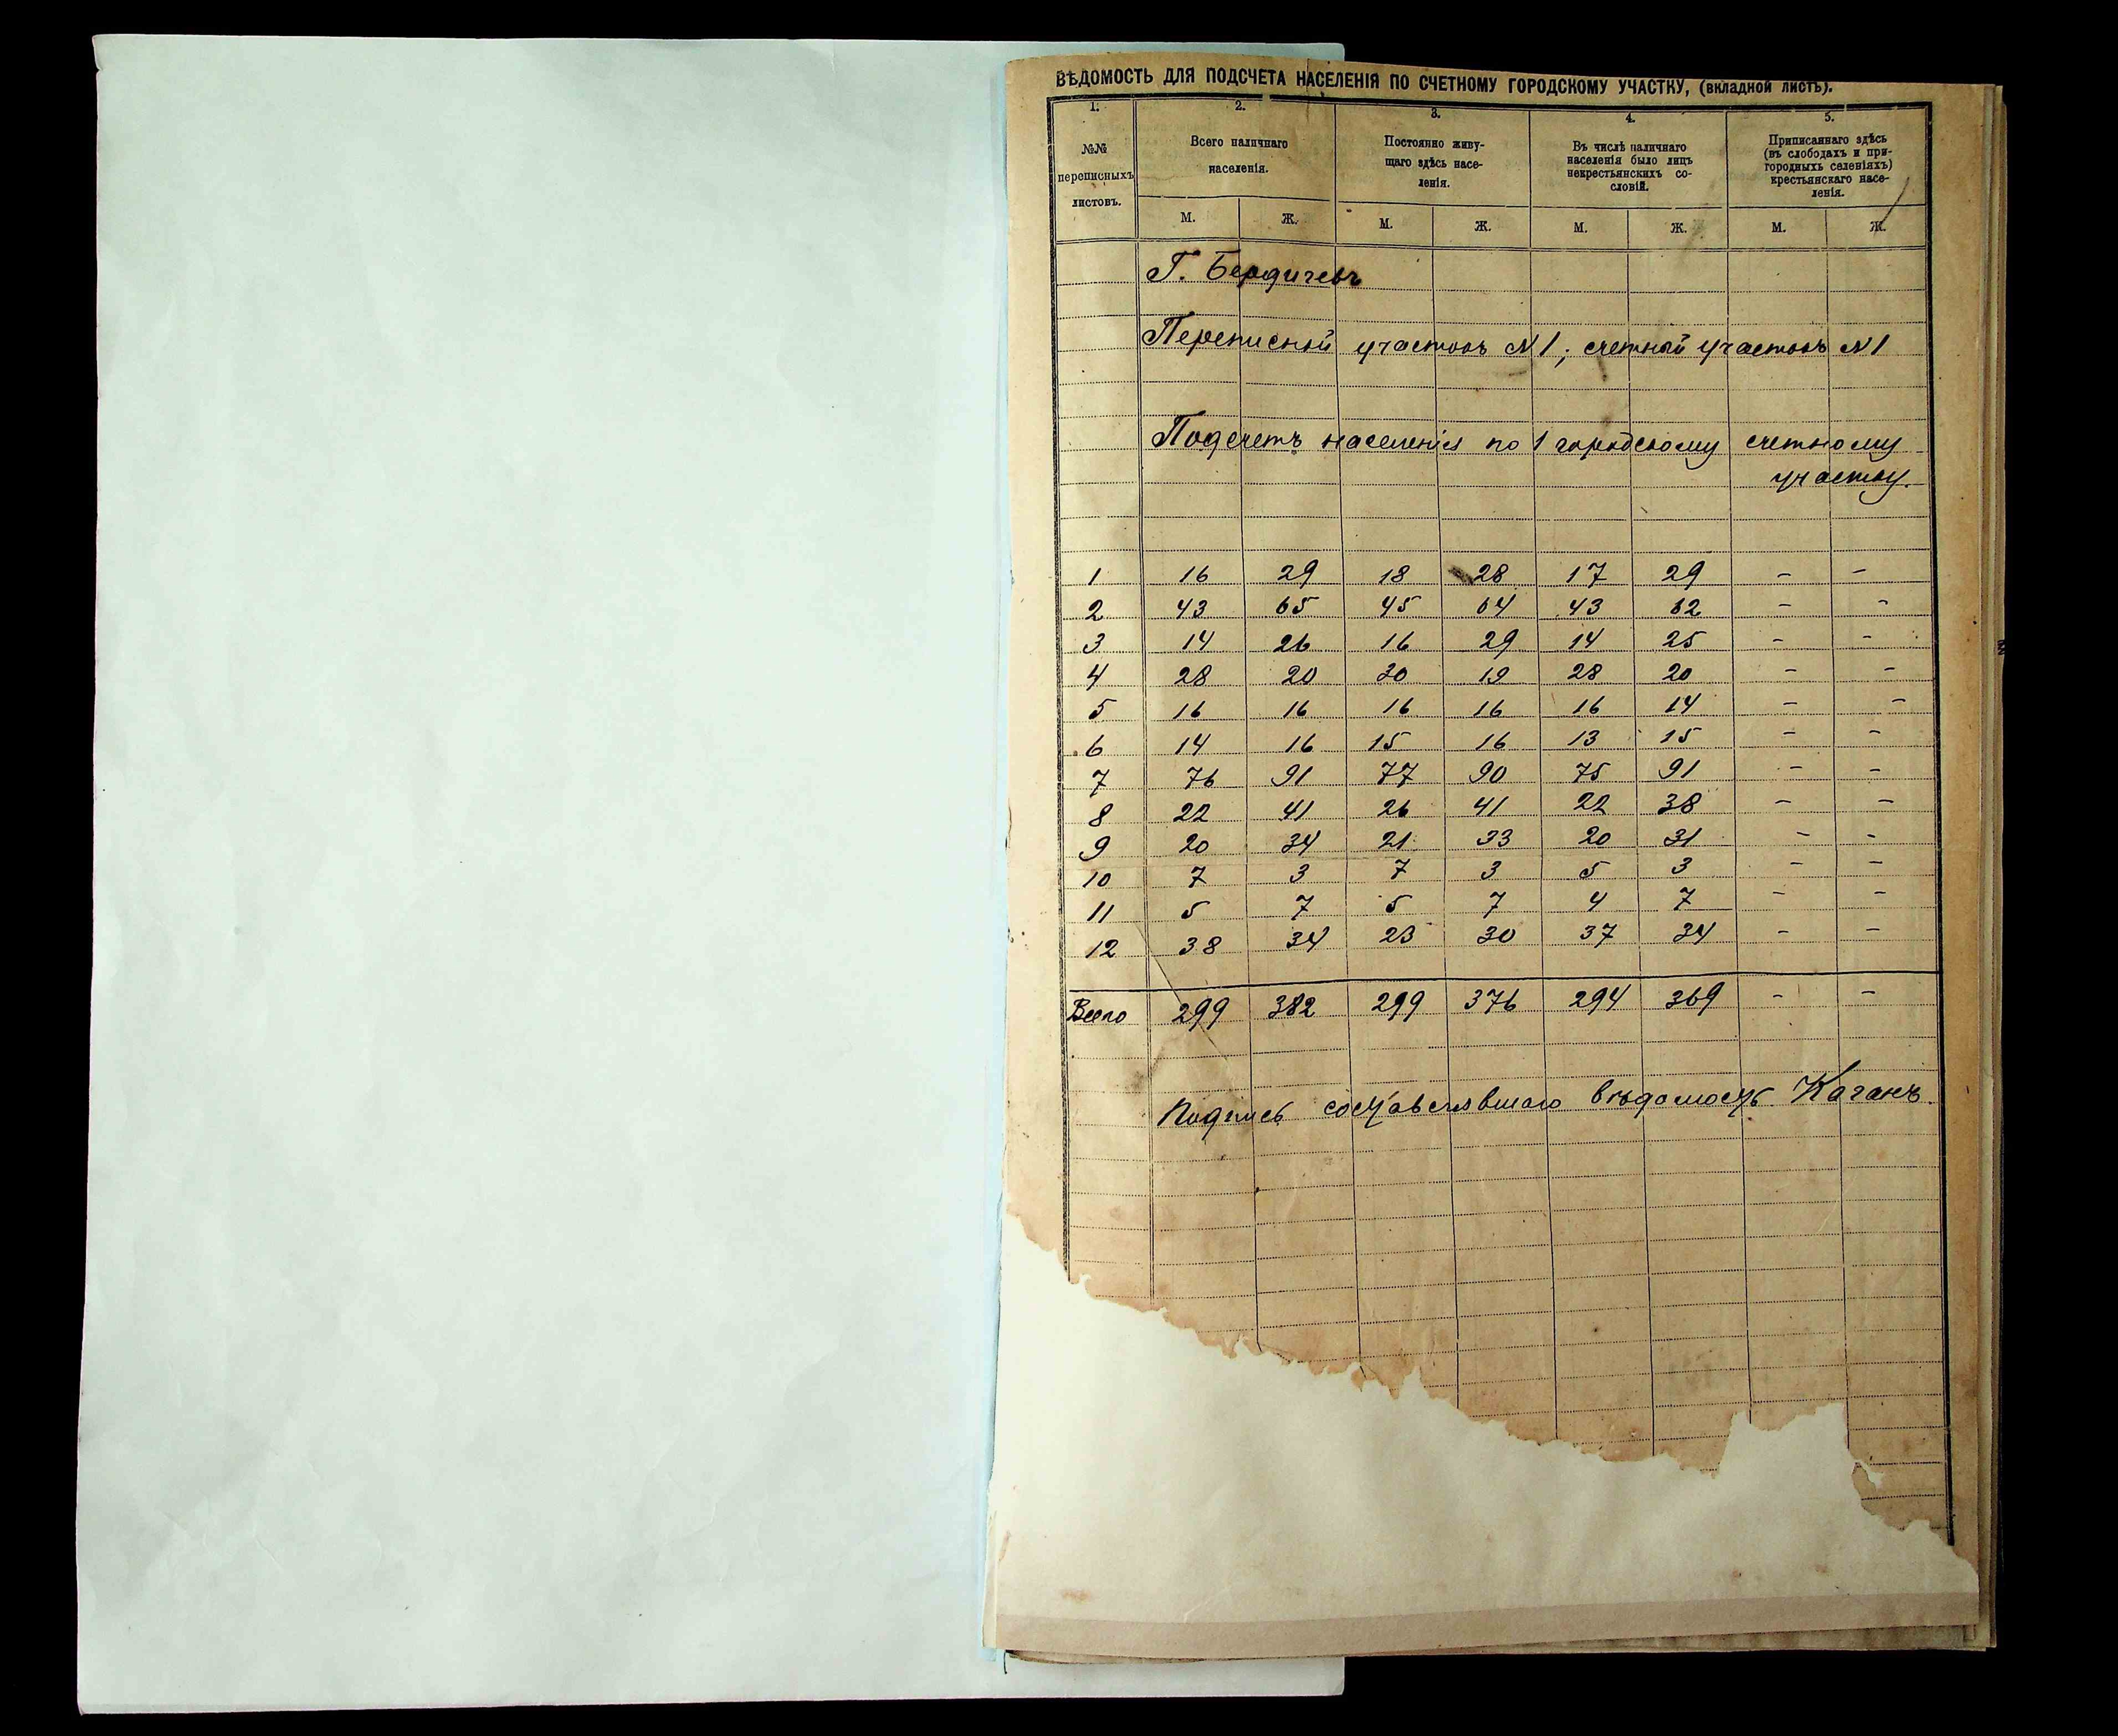 ВѢДОМОСТЬ ДЛЯ ПОДСЧЕТА НАСЕЛЕНІЯ ПО СЧЕТНОМУ ГОРОДСКОМУ УЧАСТКУ, (вкладной листъ).
1. 2. 3. 4. 5.
№№ переписныхъ листовъ.
Всего наличнаго населенія.
Постоянно живущаго здѣсь населенія.
Въ числѣ наличнаго населенія было лицъ некрестьянскихъ сословій.
Приписаннаго здѣсь (въ слободахъ и пригородныхъ селеніяхъ) крестьянскаго населенія.
М. Ж. М. Ж. М. Ж. М. Ж.
Г. Бердичевъ
Переписной участокъ №1; счетный участокъ №1
Подсчетъ населенія по 1 городскому счетному
участку.
1 16 29 18 28 17 29 - -
2 43 65 45 64 43 62 - -
3 14 26 16 29 14 25 - -
4 28 20 30 19 28 20 - -
5 16 16 16 16 16 14 - -
6 14 16 15 16 13 15 - -
7 76 91 77 90 75 91 - -
8 22 41 26 41 22 38 - -
9 20 34 21 33 20 31 - -
10 7 3 7 3 5 3 - -
11 5 7 5 7 4 7 - -
12 38 34 23 30 37 34 - -
Всего 299 382 299 376 294 369 - -
Подпись составлявшаго вѣдомость Каганъ.